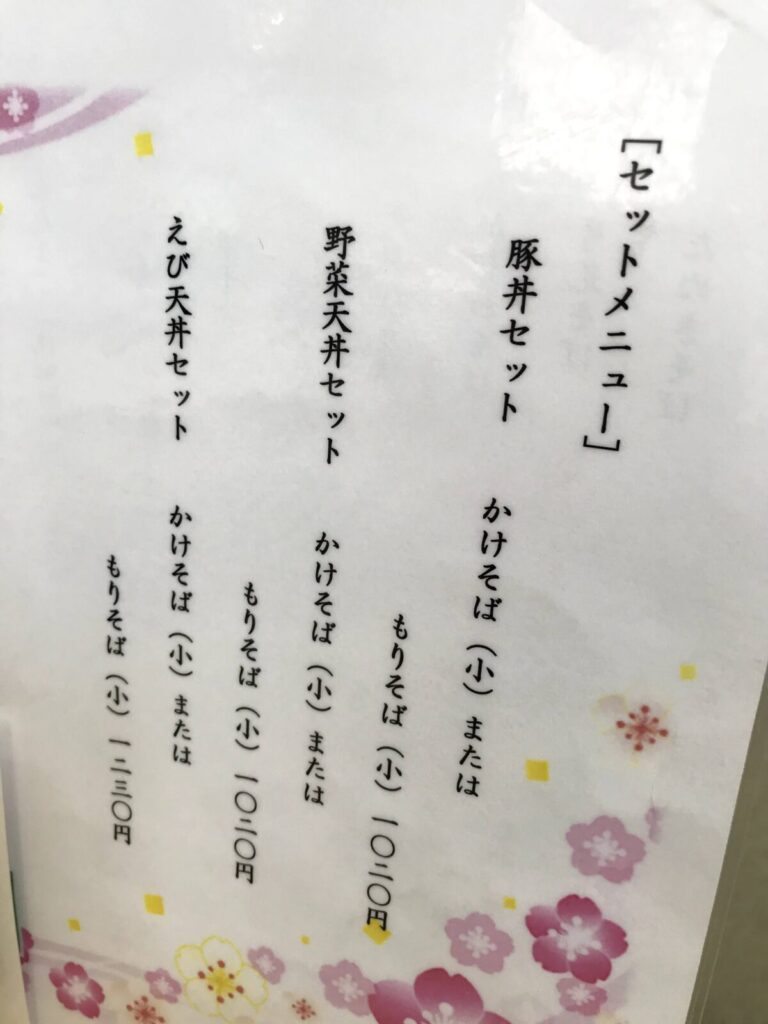 ［セットメニュー］
豚丼セット　かけそば（小）または
もりそば（小）一〇二〇円
野菜天丼セット　かけそば（小）または
もりそば（小）一〇二〇円
えび天丼セット　かけそば（小）または
もりそば（小）一二三〇円